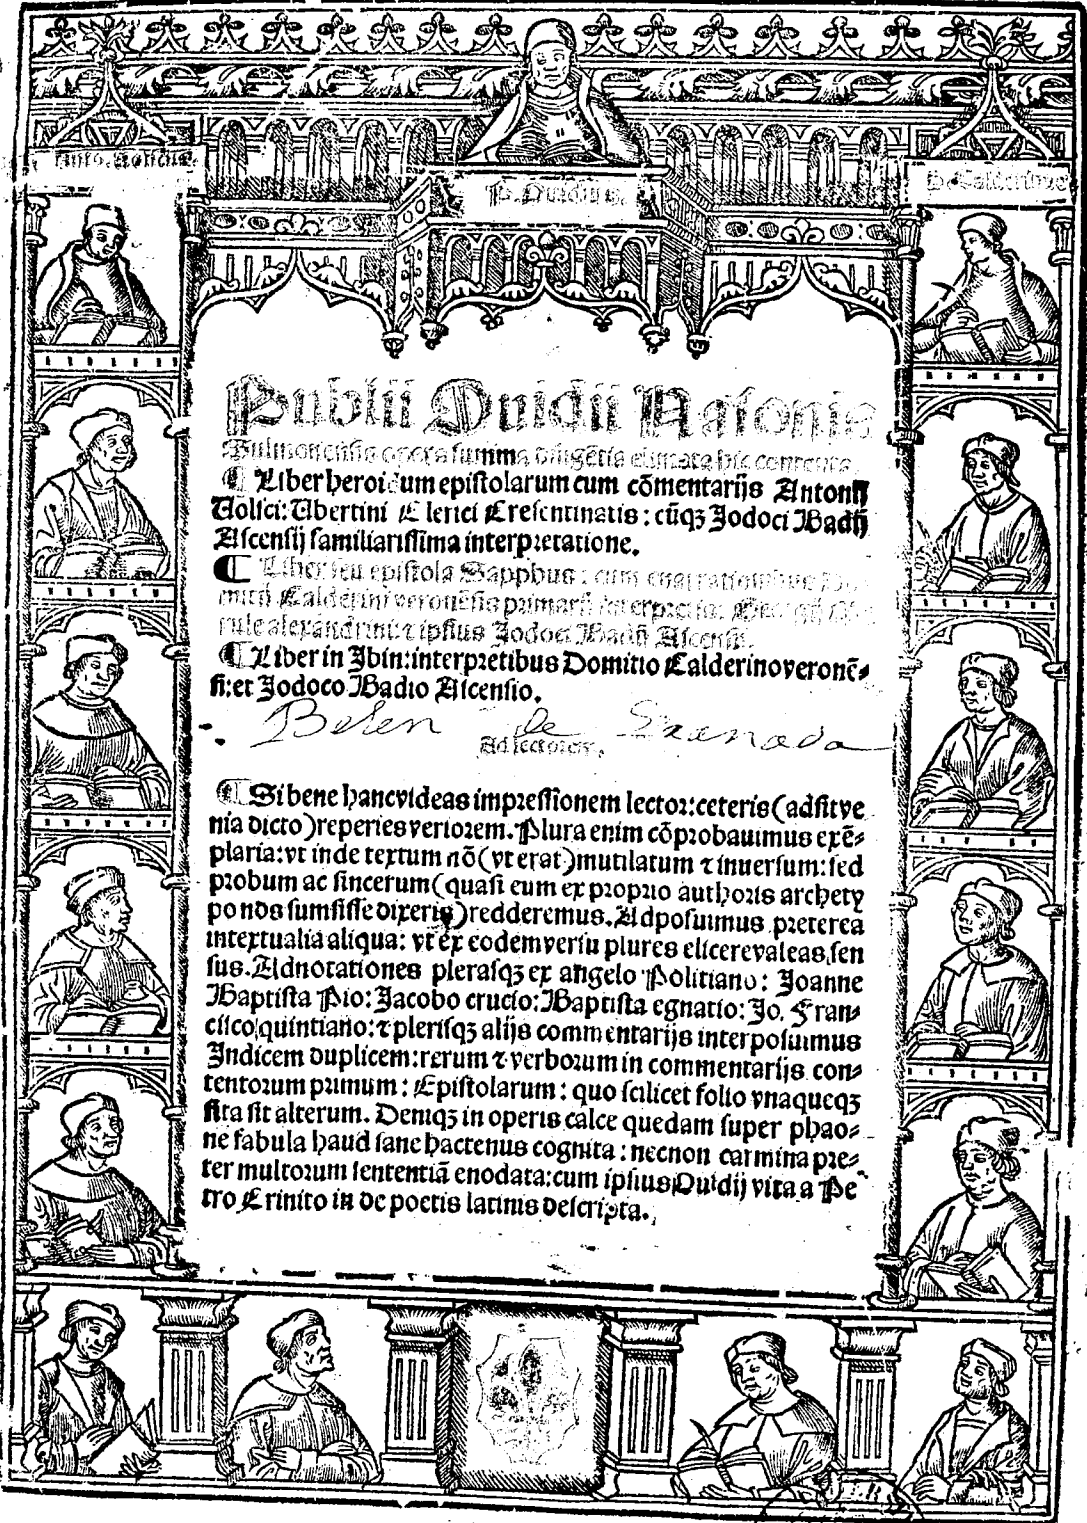 Anto. Volscus.
P. Ouidius.
D. Calderinus
Publii Ouidii Nasonis
Sulmonensis opera summa diligētia elimata hic contenta.
¶ Liber heroidum epistolarum cum cōmentarijs Antonij
Uolsci: Ubertini Clerici Crescentinatis: cūqꝫ Jodoci Badij
Ascensij familiarissima interpretatione.
¶ Liber seu epistola Sapphus: cum enarrationibus Do-
mitij Calderini veronēsis primarij interpretis: Georgij Me-
rule alexandrini: ⁊ ipsius Jodoci Badij Ascensij.
¶ Liber in Jbin: interpretibus Domitio Calderino veronē-
si: et Jodoco Badio Ascensio.
Belen de Granada
Ad lectorem.
¶ Si bene hanc videas impressionem lector: ceteris (adsit ve
nia dicto) reperies veriorem. Plura enim cōprobauimus exē-
plaria: vt inde textum nō (vt erat) mutilatum ⁊ inuersum: sed
probum ac sincerum (quasi eum ex proprio authoris archety
po nos sumsisse dixeris) redderemus. Adposuimus preterea
intextualia aliqua: vt ex eodem versu plures elicere valeas sen
sus. Adnotationes plerasqꝫ ex angelo Politiano: Joanne
Baptista Pio: Jacobo crucio: Baptista egnatio: Jo. Fran-
cisco quintiano: ⁊ plerisqꝫ alijs commentarijs interposuimus
Jndicem duplicem: rerum ⁊ verborum in commentarijs con-
tentorum primum: Epistolarum: quo scilicet folio vnaqueqꝫ
sita sit alterum. Deniqꝫ in operis calce quedam super phao-
ne fabula haud sane hactenus cognita: necnon carmina pre-
ter multorum sententiā enodata: cum ipsius Ouidij vita a Pe
tro Crinito in de poetis latinis descripta.